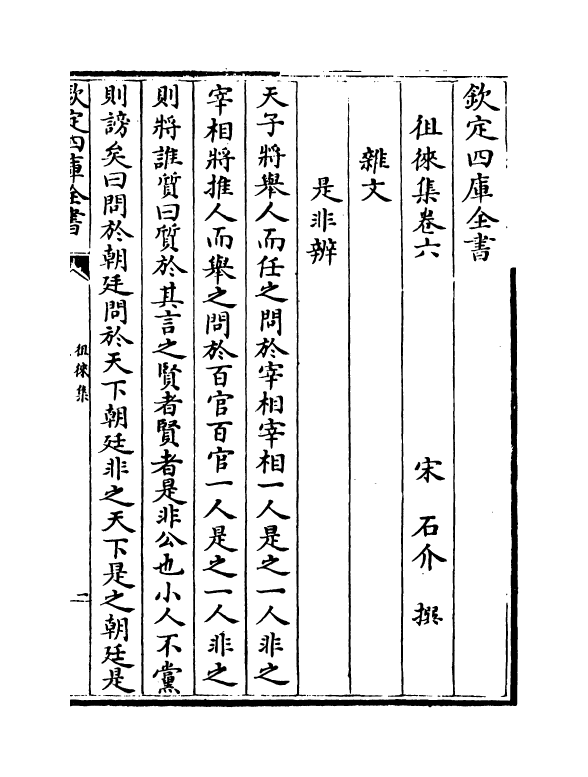 欽定四庫全書
徂徠集卷六
宋 石介 撰
雜文
是非辨
天子將舉人而任之問於宰相宰相一人是之一人非之
宰相將推人而舉之問於百官百官一人是之一人非之
則將誰質曰質於其言之賢者賢者是非公也小人不黨
則謗矣曰問於朝廷問於天下朝廷非之天下是之朝廷是
欽定四庫全書
徂徠集
一